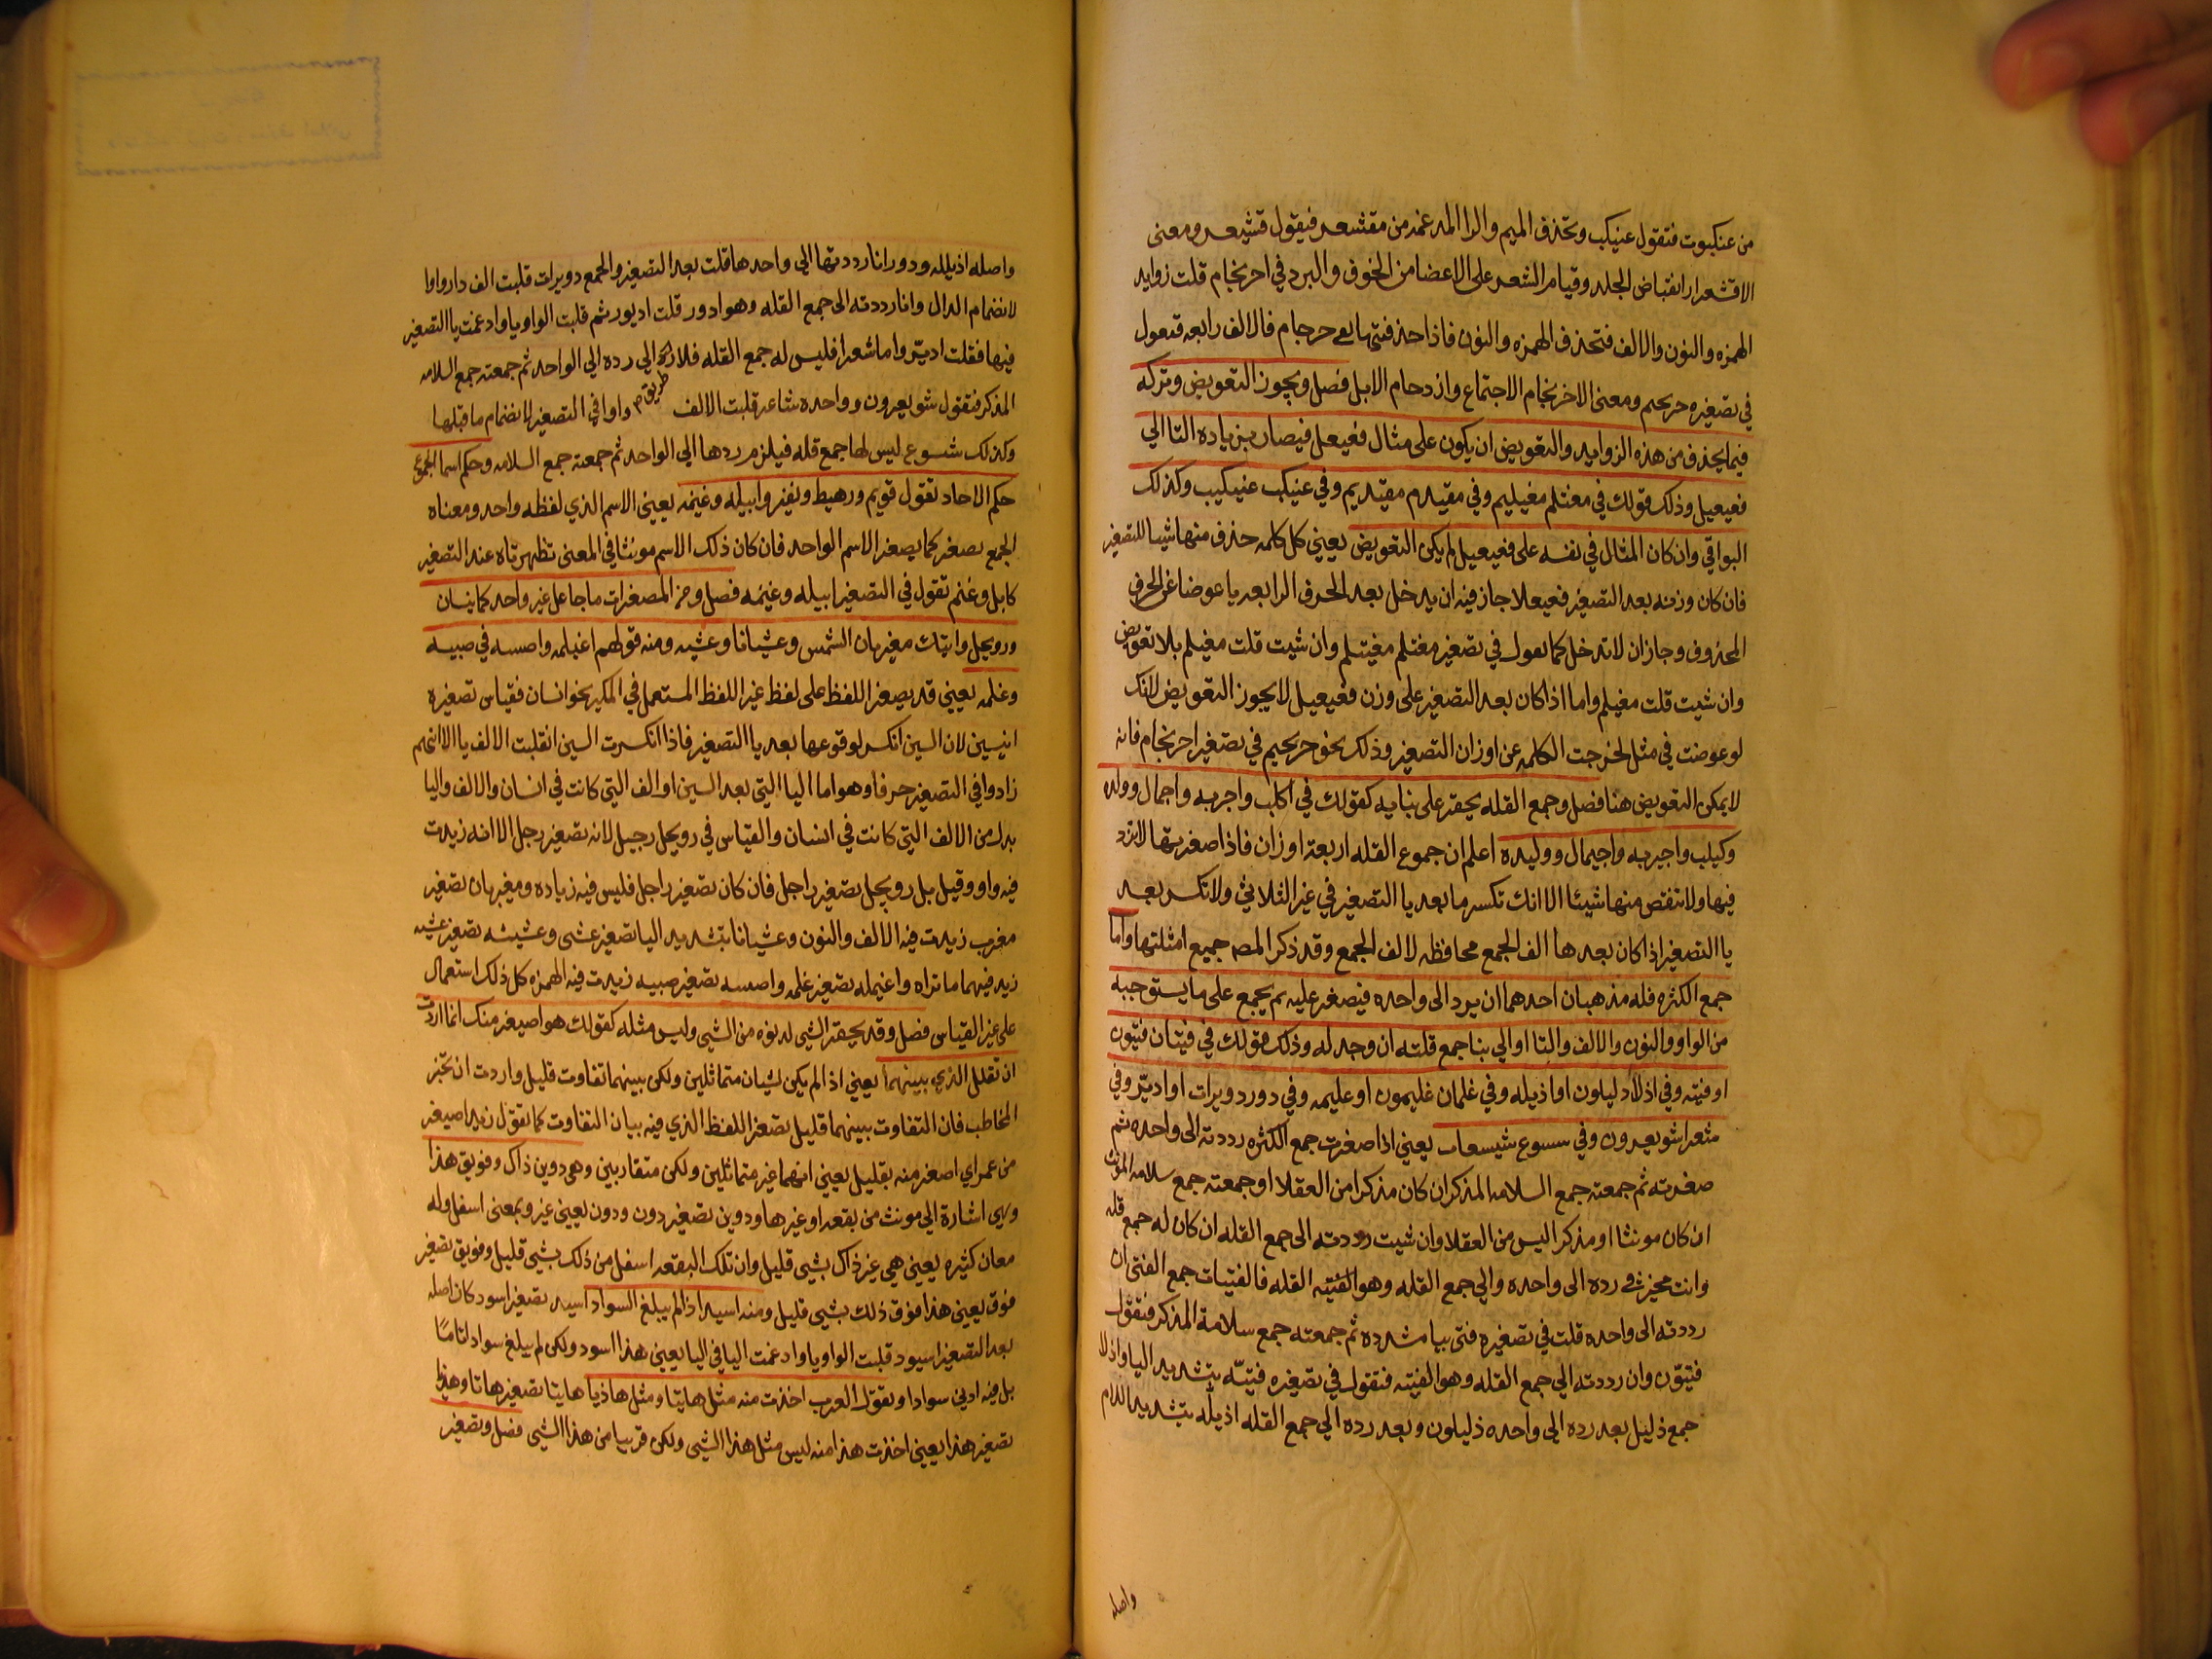 من عنكبوت فتقول عنيكب وتحذف الميم والرا المدغمه من مقشعر فيقول قشيعر ومعنى
الاقشعرار انقباض الجلد وقيام الشعر على الاعضا من الخوف والبرد في احرنجام قلت زوايد
الهمزه والنون والالف فتحذف الهمزه والنون فاذا حذفتها بقي حرجام فالالف رابعه فتقول
في تصغيره حريجيم ومعنى الاحرنجام الاجتماع وازدحام الابل فصل ويجوز التعويض وتركه
فيما يحذف من هذه الزوايد والتعويض ان يكون على مثال فعيعل فيصار بزياده التا الي
فعيعيل وذلك قولك في مغتلم مغيليم وفي مقيدم مقيديم وفي عنيكب عنيكيب وكذلك
البواقي وان كان المثال في نفسه على فعيعيل لم يكن التعويض يعيني كل كلمه حذف منها شيا للتصغير
فان كان وزنه بعد التصغير فعيعلا جاز فيه ان يدخل بعد الحرف الرابعه يا عوضا عن الحرف
المحذوف وجاز ان لا تدخل كما تقول في تصغير مغتلم مغيتلم وان شيت قلت مغيلم بلا تعويض
وان شيت قلت مغيلم واما اذا كان بعد التصغير على وزن فعيعيل لا يجوز التعويض لانك
لو عوضت في مثل لخرجت الكلمه عن اوزان التصغير وذلك نحو حريجيم في تصغير احرنجام فانه
لا يمكن التعويض هنا فصل وجمع القله يحقر على بنايه كقولك في اكلب واجربه واجمال وولده
وكيلب واجيربه واجيمال ووليده اعلم ان جموع القله اربعة اوزان فاذا صغرتها لا تزد
فيها ولا تنقص منها شيئا الا انك تكسر ما بعد يا التصغير في غير الثلاثي ولا تكسر بعد
يا التصغير اذا كان بعدها الف الجمع محافظه لالف الجمع وقد ذكر المص جميع امثلتها واما
جمع الكثره فله مذهبان احدهما ان يرد الى واحده فيصغر عليه ثم يجمع على ما يستوجبه
من الواو والنون والالف والتا او الي بنا جمع قلته ان وجد له وذلك قولك في فتيان فتيون
او فتيه وفي اذلا ذليلون او اذيله وفي غلمان غليمون او غليمه وفي دور دويرات او اديّر وفي
شعرا شويعرون وفي شسوع شسيعات يعيني اذا صغرت جمع الكثره رددته الى واحده ثم
صغرته ثم جمعته جمع السلامه المذكر ان كان مذكرا من العقلا او جمعته جمع سلامه المؤنث
ان كان مونثا او مذكرا ليس من العقلا وان شيت رددته الى جمع القله ان كان له جمع قله
وانت مخير في رده الى واحده والي جمع القله وهو الفتيه القله فالفتيات جمع الفتى ان
رددته الى واحده قلت في تصغيره فتى بيا مشدده ثم جمعته جمع سلامة المذكر فتقول
فتيّون وان رددته الي جمع القله وهو الفتيه فتقول في تصغيره فتيّه بتشديد اليا واذلا
جمع ذليل بعد رده الى واحده ذليلون وبعد رده الي جمع القله اذيلّه بتشديد اللام
واصله
واصله اذيلله ودور انا رددتها الي واحدها قلت بعد التصغير والجمع دويرات قلبت الف دار واوا
لانضمام الدال وانا رددته الى جمع القله وهو ادور قلت اديور ثم قلبت الواو يا وادغمت يا التصغير
فيها فقلت اديّر واما شعرا فليس له جمع القله فلا الي رده الي الواحد ثم جمعته جمع السلامه
طريق
المذكر فتقول شويعرون وواحده شاعر قلبت الالف واوا في التصغير لانضمام ما قبلها
وكذلك شسوع ليس لها جمع قله فيلزم ردها الي الواحد ثم جمعته جمع السلامه وحكم اسما الجموع
حكم الاحاد تقول قويم ورهيط ونفير وابيله وغنيمه يعيني الاسم الذي لفظه واحد ومعناه
الجمع يصغر كما يصغر الاسم الواحد فان كان ذلك الاسم مونثا في المعنى تظهر تاه عند التصغير
كابل وغنم تقول في التصغير ابيله وغنيمه فصل ومن المصغرات ما جا على غير واحد كانيسيان
ورويجل واتيتك مغيربان الشمس وعشيانا وعشيه ومنه قولهم اغيلمه واصيبيه في صبيه
وغلمه يعيني قد يصغر اللفظ على لفظ غير اللفظ المستعمل في المكبر نحو انسان فقياس تصغيره
انيسين لان السين انكسر لوقوعها بعد يا التصغير فاذا انكسرت السين انقلبت الالف يا الا انهم
زادوا في التصغير حرفا وهو اما اليا التي بعد السين او الف التي كانت في انسان والالف واليا
بدل من الالف التي كانت في انسان والقياس في رويجل رجيل لانه تصغير رجل الا انه زيدت
فيه واو وقيل بل رويجل تصغير راجل فان كان تصغير راجل فليس فيه زياده ومغيربان تصغير
مغرب زيدت فيه الالف والنون وعشيانا بتشديد اليا تصغير عشى وعشيشه تصغير عشيه
زيد فيهما ما تراه واغيمله تصغير غلمه واصيبيه تصغير صبيه زيدت فيه الهمزه كل ذلك استعمال
على غير القياس فصل وقد يحقر الشي لدنوه من الشيي وليس مثله كقولك هو اصيغر منك انما اردت
ان تقلل الذي بينهما يعيني اذا لم يكن لشيان متماثلين ولكن بينهما تفاوت قليل واردت ان تخبر
المخاطب فان التفاوت بينهما قليل تصغر اللفظ الذي فيه بيان التفاوت كما تقول زيد اصيغر
من عمر اي اصغر منه بقليل يعيني انهما غير متماثلين ولكن متقاربين وهي دوين ذاك وفويق هذا
وهي اشارة الي مونث من بقعه او غيرها ودوين تصغير دون ودون يعيني غير وبمعنى اسفل وله
معان كثيره يعيني هي غير ذاك بشيي قليل وان تلك البقعه اسفل من ذلك بشيي قليل وفويق تصغير
فوق يعيني هذا فوق ذلك بشيي قليل ومنه اسيد اذ الم يبلغ السواد اسيد تصغير اسود كان اصله
بعد التصغير اسيود قلبت الواو يا وادغمت اليا في اليا يعيني هذا اسود ولكن لم يبلغ سوادا تامّا
بل فيه ادني سوادا وتقول العرب اخذت منه مثل هاتيا ومثل هاذيا هاتيا تصغير هاتا وهذيا
تصغير هذا يعيني اخذت هذا منه ليس مثل هذا الشي ولكن قريبا من هذا الشيي فصل وتصغير